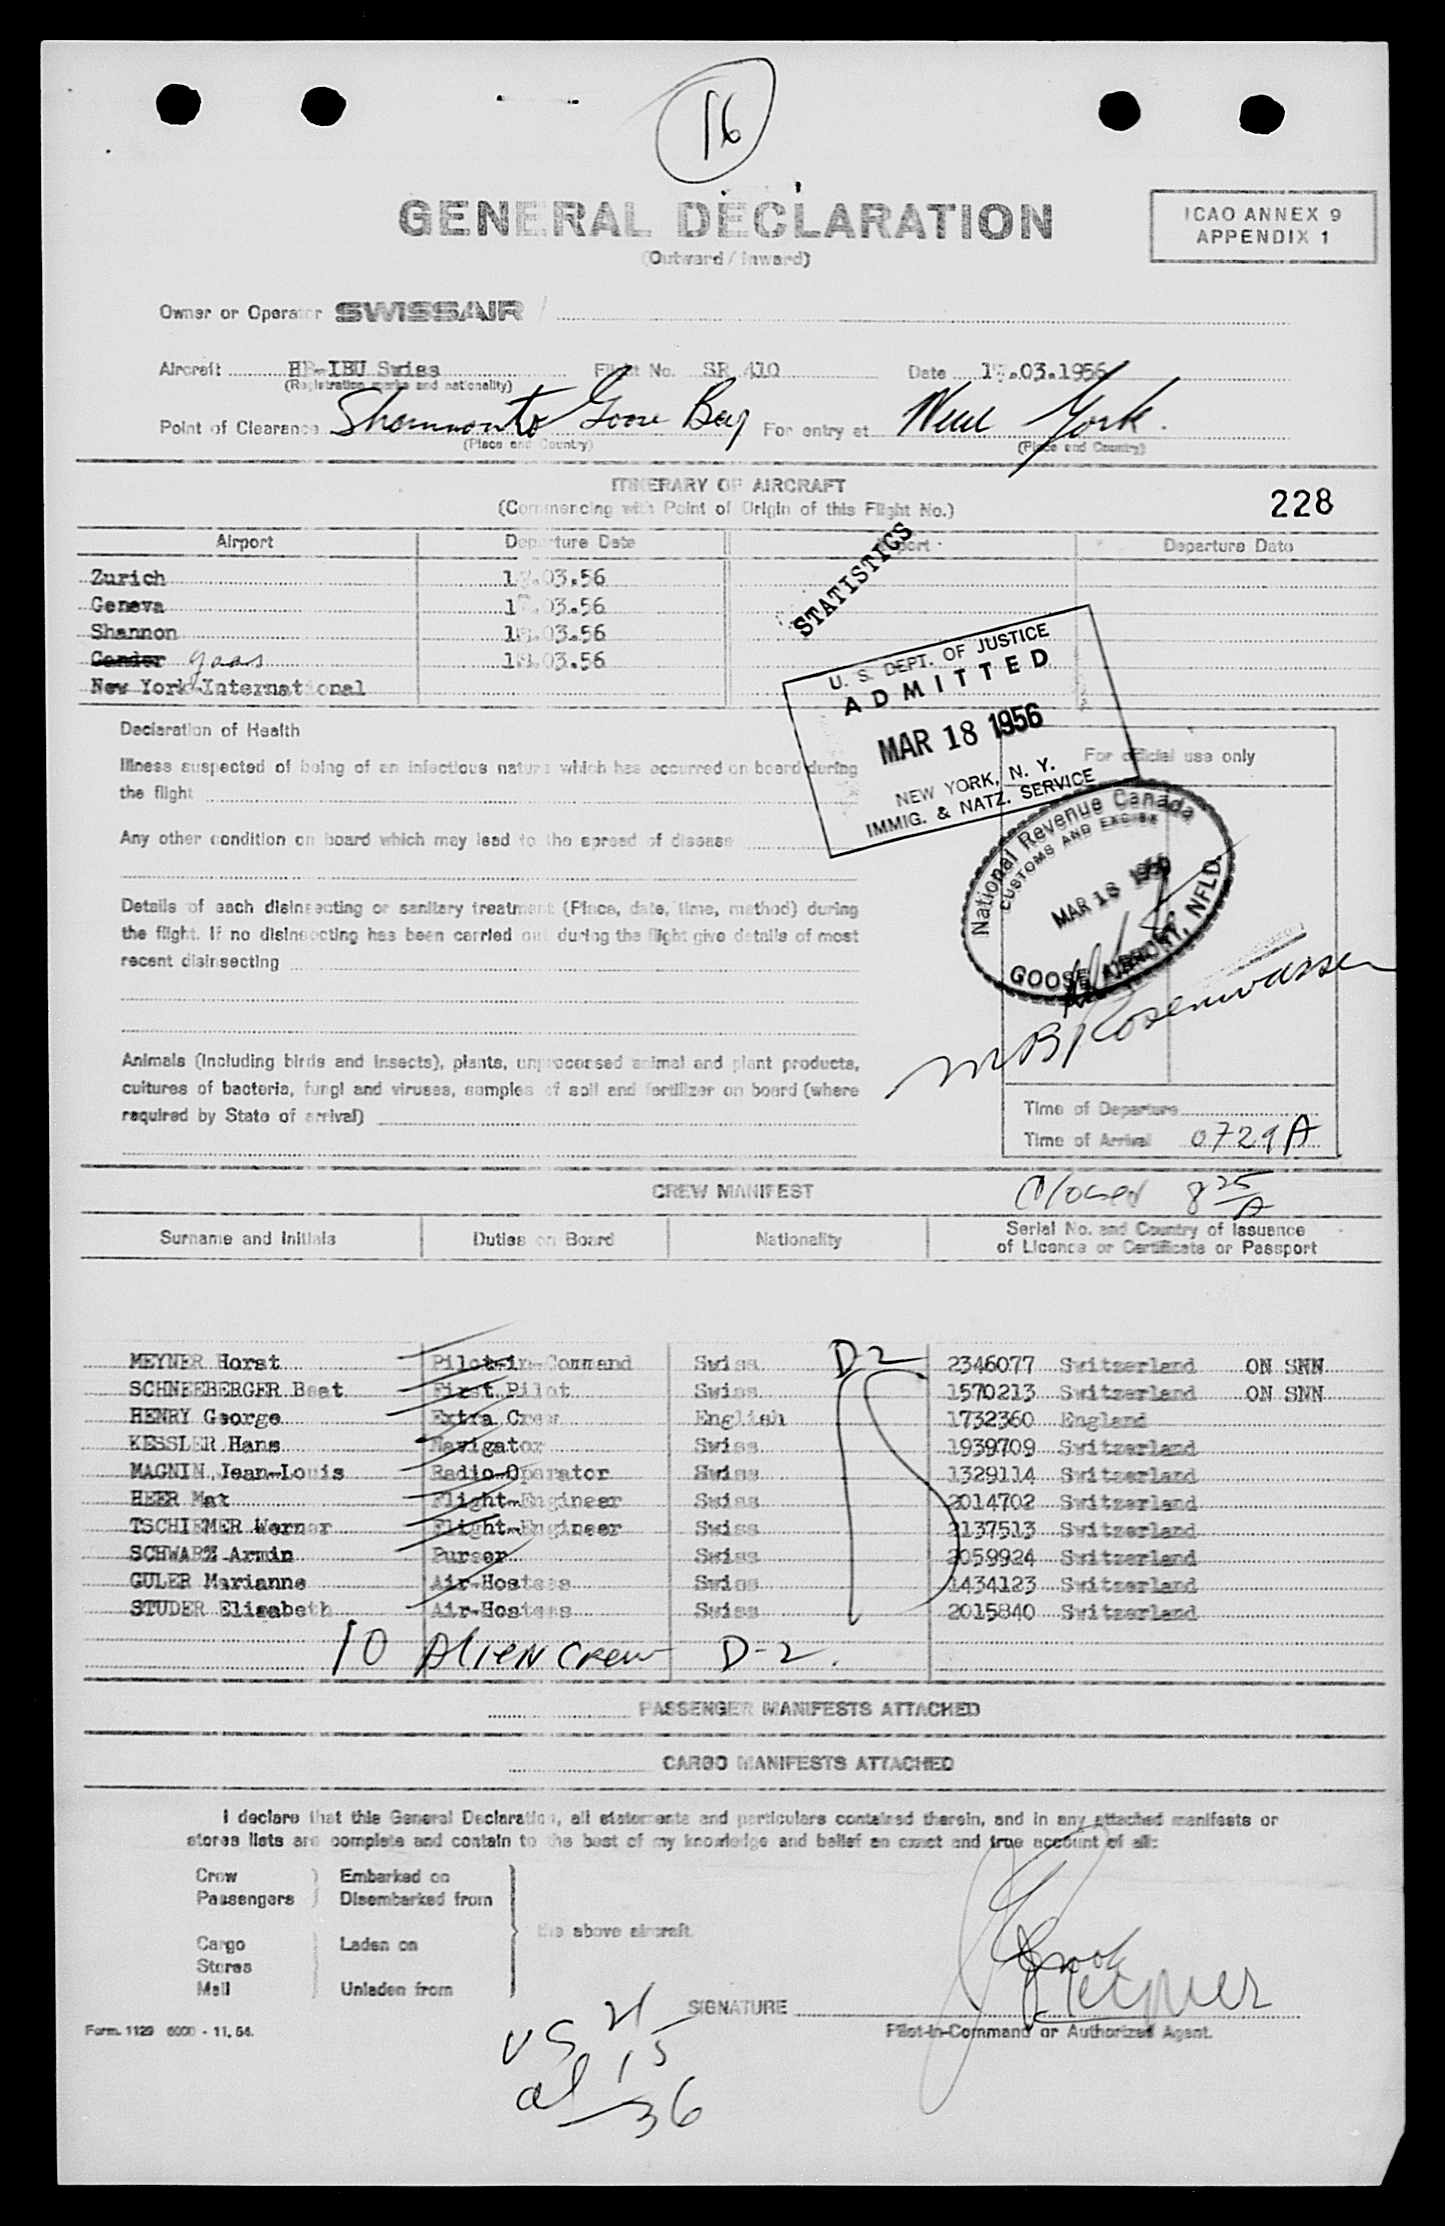 16
GENERAL DECLARATION
(Outward / Inward)
ICAO ANNEX 9
APPENDIX 1
Owner or Operator SWISSAIR
Aircraft HB-IBU Swiss Flight No. SR 410 Date .03.1956
(Registration marks and nationality)
Point of Clearance Shannon to Goose Bay For entry at New York.
(Place and Country) (Place and Country)
ITINERARY OF AIRCRAFT
(Commencing with Point of Origin of this Flight No.)
228
Airport Departure Date Airport Departure Date
Zurich .03.56
Geneva .03.56
Shannon .03.56
Gander Goos .03.56
New York International
STATISTICS
U. S. DEPT. OF JUSTICE
ADMITTED
MAR 18 1956
NEW YORK, N. Y.
IMMIG. & NATZ. SERVICE
Declaration of Health
Illness suspected of being of an infectious nature which has occurred on board during
the flight
Any other condition on board which may lead to the spread of disease
Details of each disinsecting or sanitary treatment (Place, date, time, method) during
the flight. If no disinsecting has been carried out during the flight give details of most
recent disinsecting
Animals (including birds and insects), plants, unprocessed animal and plant products,
cultures of bacteria, fungi and viruses, samples of soil and fertilizer on board (where
required by State of arrival)
For official use only
National Revenue Canada
CUSTOMS AND EXCISE
MAR 18 1956
GOOSE AIRPORT, NFLD.
M B Rosenwasser
Time of Departure
Time of Arrival 0729 A
Closed 8 25 A
CREW MANIFEST
Surname and Initials Duties on Board Nationality Serial No. and Country of Issuance
of Licence or Certificate or Passport
MEYNER Horst Pilot-in-Command Swiss D2 2346077 Switzerland ON SNN
SCHNEEBERGER Beat First Pilot Swiss 1570213 Switzerland ON SNN
HENRY George Extra Crew English 1732360 England
KESSLER Hans Navigator Swiss 1939709 Switzerland
MAGNIN Jean-Louis Radio-Operator Swiss 1329114 Switzerland
HEER Max Flight-Engineer Swiss 2014702 Switzerland
TSCHIEMER Werner Flight-Engineer Swiss 2137513 Switzerland
SCHWARZ Armin Purser Swiss 2059924 Switzerland
GULER Marianne Air-Hostess Swiss 1434123 Switzerland
STUDER Elisabeth Air-Hostess Swiss 2015840 Switzerland
10 Alien Crew D-2.
PASSENGER MANIFESTS ATTACHED
CARGO MANIFESTS ATTACHED
I declare that this General Declaration, all statements and particulars contained therein, and in any attached manifests or
stores lists are complete and contain to the best of my knowledge and belief an exact and true account of all:
Crew Embarked on
Passengers Disembarked from
the above aircraft.
Cargo Laden on
Stores
Mail Unladen from
SIGNATURE Meyner
Form. 1129 6000 - 11. 54.
Pilot-in-Command or Authorized Agent.
US 21
al 15
36